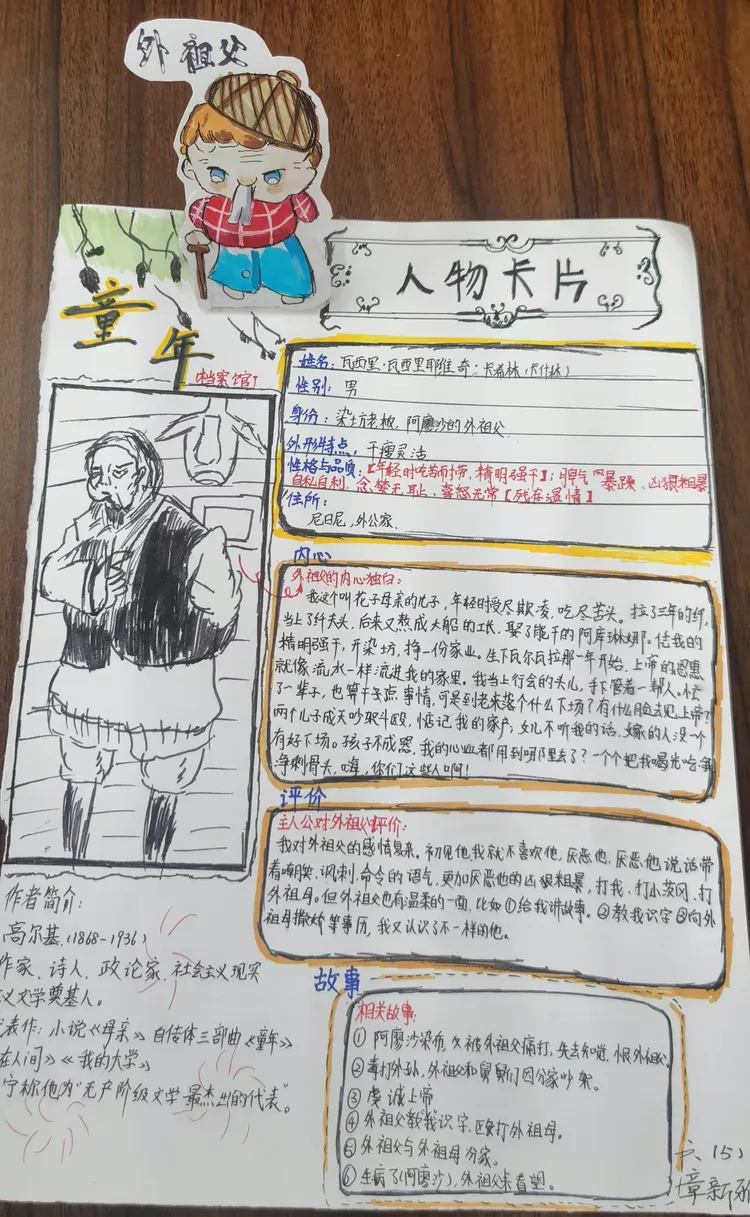 外祖父
人物卡片
童年
档案馆
姓名：瓦西里·瓦西里耶维奇·卡希林（卡什林）
性别：男
身份：染坊老板，阿廖沙的外祖父
外形特点：干瘦灵活
性格与品质：【年轻时吃苦耐劳，精明强干】；脾气暴躁、凶狠粗暴
自私自利、贪婪无耻、喜怒无常【残存温情】
住所：
尼日尼，外公家
内心
外祖父的内心独白：
我这个叫花子母亲的儿子，年轻时受尽欺凌，吃尽苦头。拉了三年的纤，
当上了纤夫头，后来又熬成大船的工长，娶了能干的阿库琳娜。凭我的
精明强干，开染坊，挣一份家业。生下瓦尔瓦拉那一年开始，上帝的恩惠
就像流水一样流进我的家里。我当上行会的头儿，手下管着一帮人。忙
了一辈子，也算干点事情，可是到老来落个什么下场？有什么脸去见上帝？
两个儿子成天吵架斗殴，惦记我的家产；女儿不听我的话，嫁的人没一个
有好下场。孩子不成器，我的心血都用到哪里去了？一个个把我喝光吃
净剩骨头，嗨，你们这些人啊！
评价
主人公对外祖父评价：
我对外祖父的感情复杂。初见他，我就不喜欢他，厌恶他，厌恶他说话带
着嘲笑、讽刺、命令的语气，更加厌恶他的凶狠粗暴，打我、打小茨冈、打
外祖母。但外祖父也有温柔的一面，比如①给我讲故事。②教我识字③向外
祖母撒娇等事历，我又认识了不一样的他。
故事
相关故事：
①阿廖沙染布，被外祖父痛打，失去知觉，恨外祖父。
②毒打外孙，外祖父和舅舅们因分家吵架。
③虔诚上帝
④外祖父教我识字，殴打外祖母。
⑤外祖父与外祖母分家。
⑥生病了（阿廖沙），外祖父来看望。
作者简介：
高尔基（1868-1936）
作家、诗人、政论家、社会主义现实
义文学奠基人。
表作：小说《母亲》自传体三部曲《童年》
在人间》《我的大学》
宁称他为“无产阶级文学最杰出的代表”。
六（5）
章新